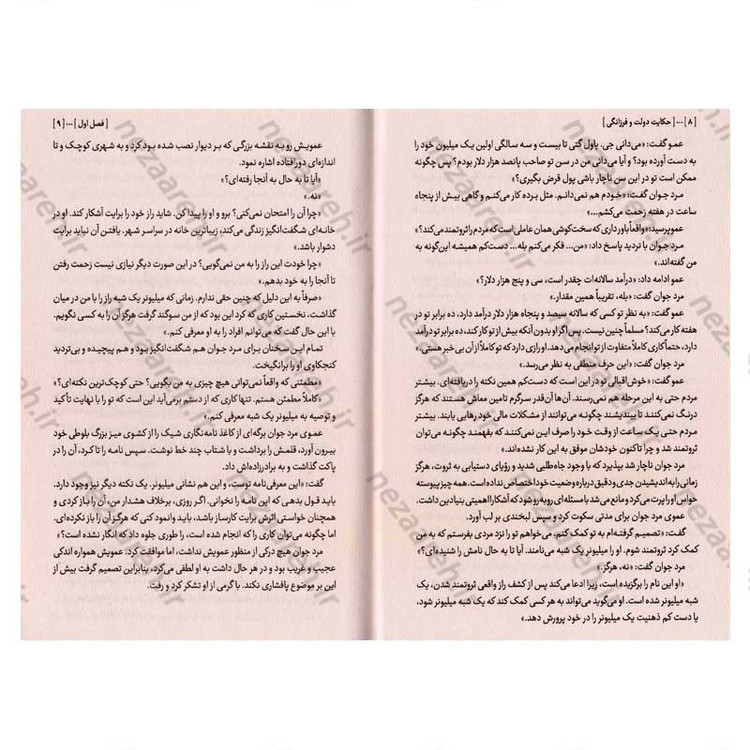 [ ۸ ] ... [ حکایت دولت و فرزانگی ]
عمو گفت: «می‌دانی جی. پاول گتی تا بیست و سه سالگی اولین یک میلیون خود را
به دست آورده بود؟ و آیا می‌دانی من در سن تو صاحب پانصد هزار دلار بودم؟ پس چگونه
ممکن است تو در این سن ناچار باشی پول قرض بگیری؟»
مرد جوان گفت: «خودم هم نمی‌دانم. مثل برده کار می‌کنم و گاهی بیش از پنجاه
ساعت در هفته زحمت می‌کشم...»
عمو پرسید: «واقعاً باور داری که سخت‌کوشی همان عاملی است که مردم را ثروتمند می‌کند؟»
مرد جوان با تردید پاسخ داد: «من... فکر می‌کنم بله... دست‌کم همیشه این‌گونه به
من گفته‌اند.»
عمو ادامه داد: «درآمد سالانه‌ات چقدر است، سی و پنج هزار دلار؟»
مرد جوان گفت: «بله، تقریباً همین مقدار.»
عمو گفت: «به نظر تو کسی که سالانه سیصد و پنجاه هزار دلار درآمد دارد، ده برابر تو در
هفته کار می‌کند؟ مسلماً چنین نیست. پس اگر او بدون آنکه بیش از تو کار کند، ده برابر تو درآمد
دارد، حتماً کاری کاملاً متفاوت از تو انجام می‌دهد. او رازی دارد که تو کاملاً از آن بی‌خبر هستی.»
مرد جوان گفت: «این حرف منطقی به نظر می‌رسد.»
عمو گفت: «خوش‌اقبالی تو در این است که دست‌کم همین نکته را دریافته‌ای. بیشتر
مردم حتی به این مرحله هم نمی‌رسند. آن‌ها آن‌قدر سرگرم تامین معاش هستند که هرگز
درنگ نمی‌کنند تا بیندیشند چگونه می‌توانند از مشکلات مالی خود رهایی یابند. بیشتر
مردم حتی یک ساعت از وقت خود را صرف این نمی‌کنند که بفهمند چگونه می‌توان
ثروتمند شد و چرا تاکنون خودشان موفق به این کار نشده‌اند.»
مرد جوان ناچار شد بپذیرد که با وجود جاه‌طلبی شدید و رؤیای دستیابی به ثروت، هرگز
زمانی را به اندیشیدن جدی و دقیق درباره وضعیت خود اختصاص نداده است. همه چیز پیوسته
حواس او را پرت می‌کرد و مانع می‌شد با مسئله‌ای روبه‌رو شود که آشکارا اهمیتی بنیادین داشت.
عموی مرد جوان برای مدتی سکوت کرد و سپس لبخندی بر لب آورد.
گفت: «تصمیم گرفته‌ام به تو کمک کنم. می‌خواهم تو را نزد مردی بفرستم که به من
کمک کرد ثروتمند شوم. او را میلیونر یک شبه می‌نامند. آیا تا به حال نامش را شنیده‌ای؟»
مرد جوان گفت: «نه، هرگز.»
«او این نام را برگزیده است، زیرا ادعا می‌کند پس از کشف راز واقعی ثروتمند شدن، یک
شبه میلیونر شده است. او می‌گوید می‌تواند به هر کسی کمک کند که یک شبه میلیونر شود،
یا دست کم ذهنیت یک میلیونر را در خود پرورش دهد.»
[ فصل اول ] ... [ ۹ ]
عمویش رو به نقشه بزرگی که بر دیوار نصب شده بود کرد و به شهری کوچک و تا
اندازه‌ای دورافتاده اشاره نمود.
«آیا تا به حال به آنجا رفته‌ای؟»
«نه.»
«چرا آن را امتحان نمی‌کنی؟ برو و او را پیدا کن. شاید راز خود را برایت آشکار کند. او در
خانه‌ای شگفت‌انگیز زندگی می‌کند، زیباترین خانه در سراسر شهر. یافتن آن نباید برایت
دشوار باشد.»
«چرا خودت این راز را به من نمی‌گویی؟ در این صورت دیگر نیازی نیست زحمت رفتن
تا آنجا را به خود بدهم.»
«صرفاً به این دلیل که چنین حقی ندارم. زمانی که میلیونر یک شبه راز را با من در میان
گذاشت، نخستین کاری که کرد این بود که از من سوگند گرفت هرگز آن را به کسی نگویم.
با این حال گفت که می‌توانم افراد را به او معرفی کنم.»
تمام این سخنان برای مرد جوان هم شگفت‌انگیز بود و هم پیچیده و بی‌تردید
کنجکاوی او را برانگیخت.
«مطمئنی که واقعاً نمی‌توانی هیچ چیزی به من بگویی؟ حتی کوچک‌ترین نکته‌ای؟»
«کاملاً مطمئن هستم. تنها کاری که از دستم برمی‌آید این است که تو را با نهایت تأکید
و توصیه به میلیونر یک شبه معرفی کنم.»
عموی مرد جوان برگه‌ای از کاغذ نامه‌نگاری شیک را از کشوی میز بزرگ بلوطی خود
بیرون آورد، قلمش را برداشت و با شتاب چند خط نوشت. سپس نامه را تا کرد، آن را در
پاکت گذاشت و به برادرزاده‌اش داد.
گفت: «این معرفی‌نامه توست، و این هم نشانی میلیونر. یک نکته دیگر نیز وجود دارد.
باید قول بدهی که این نامه را نخوانی. اگر روزی، برخلاف هشدار من، آن را باز کردی و
همچنان خواستی اثرش برایت کارساز باشد، باید وانمود کنی که هرگز آن را باز نکرده‌ای.
اما چگونه می‌توان کاری را که انجام شده است، را طوری جلوه داد که انگار نشده است؟»
مرد جوان هیچ درکی از منظور عمویش نداشت، اما موافقت کرد. عمویش همواره اندکی
عجیب و غریب بود و در هر حال داشت به او لطفی می‌کرد، بنابراین تصمیم گرفت بیش از
این بر موضوع پافشاری نکند. با گرمی از او تشکر کرد و رفت.
nezaareh.ir